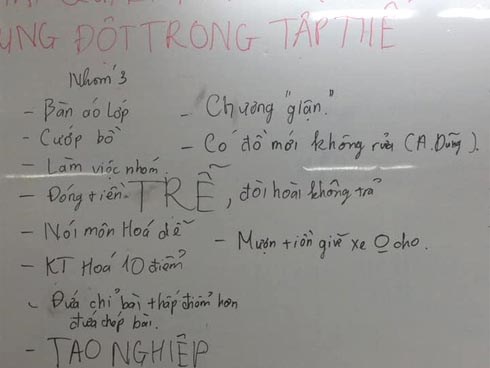 UNG ĐỘT TRONG TẬP THỂ
Nhóm 3
- Bàn áo lớp
- Cướp bồ
- Làm việc nhóm.
- Đóng tiền TRỄ, đòi hoài không trả
- Nói môn Hoá dễ
- KT Hoá 10 điểm
- Đứa chỉ bài thấp điểm hơn
đứa chép bài.
- TẠO NGHIỆP
- Chương "giận."
- Có đồ mới không rửa (A. Dũng).
- Mượn tiền giữ xe O cho.